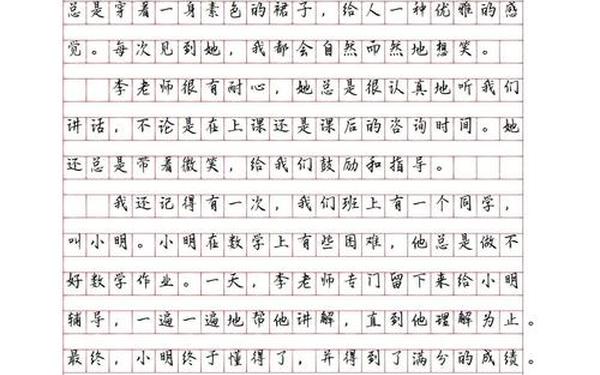 总是穿着一身素色的裙子，给人一种优雅的感
觉。每次见到她，我都会自然而然地想笑。
李老师很有耐心，她总是很认真地听我们
讲话，不论是在上课还是课后的咨询时间。她
还总是带着微笑，给我们鼓励和指导。
我还记得有一次，我们班上有一个同学，
叫小明。小明在数学上有些困难，他总是做不
好数学作业。一天，李老师专门留下来给小明
辅导，一遍一遍地帮他讲解，直到他理解为止。
最终，小明终于懂得了，并得到了满分的成绩。